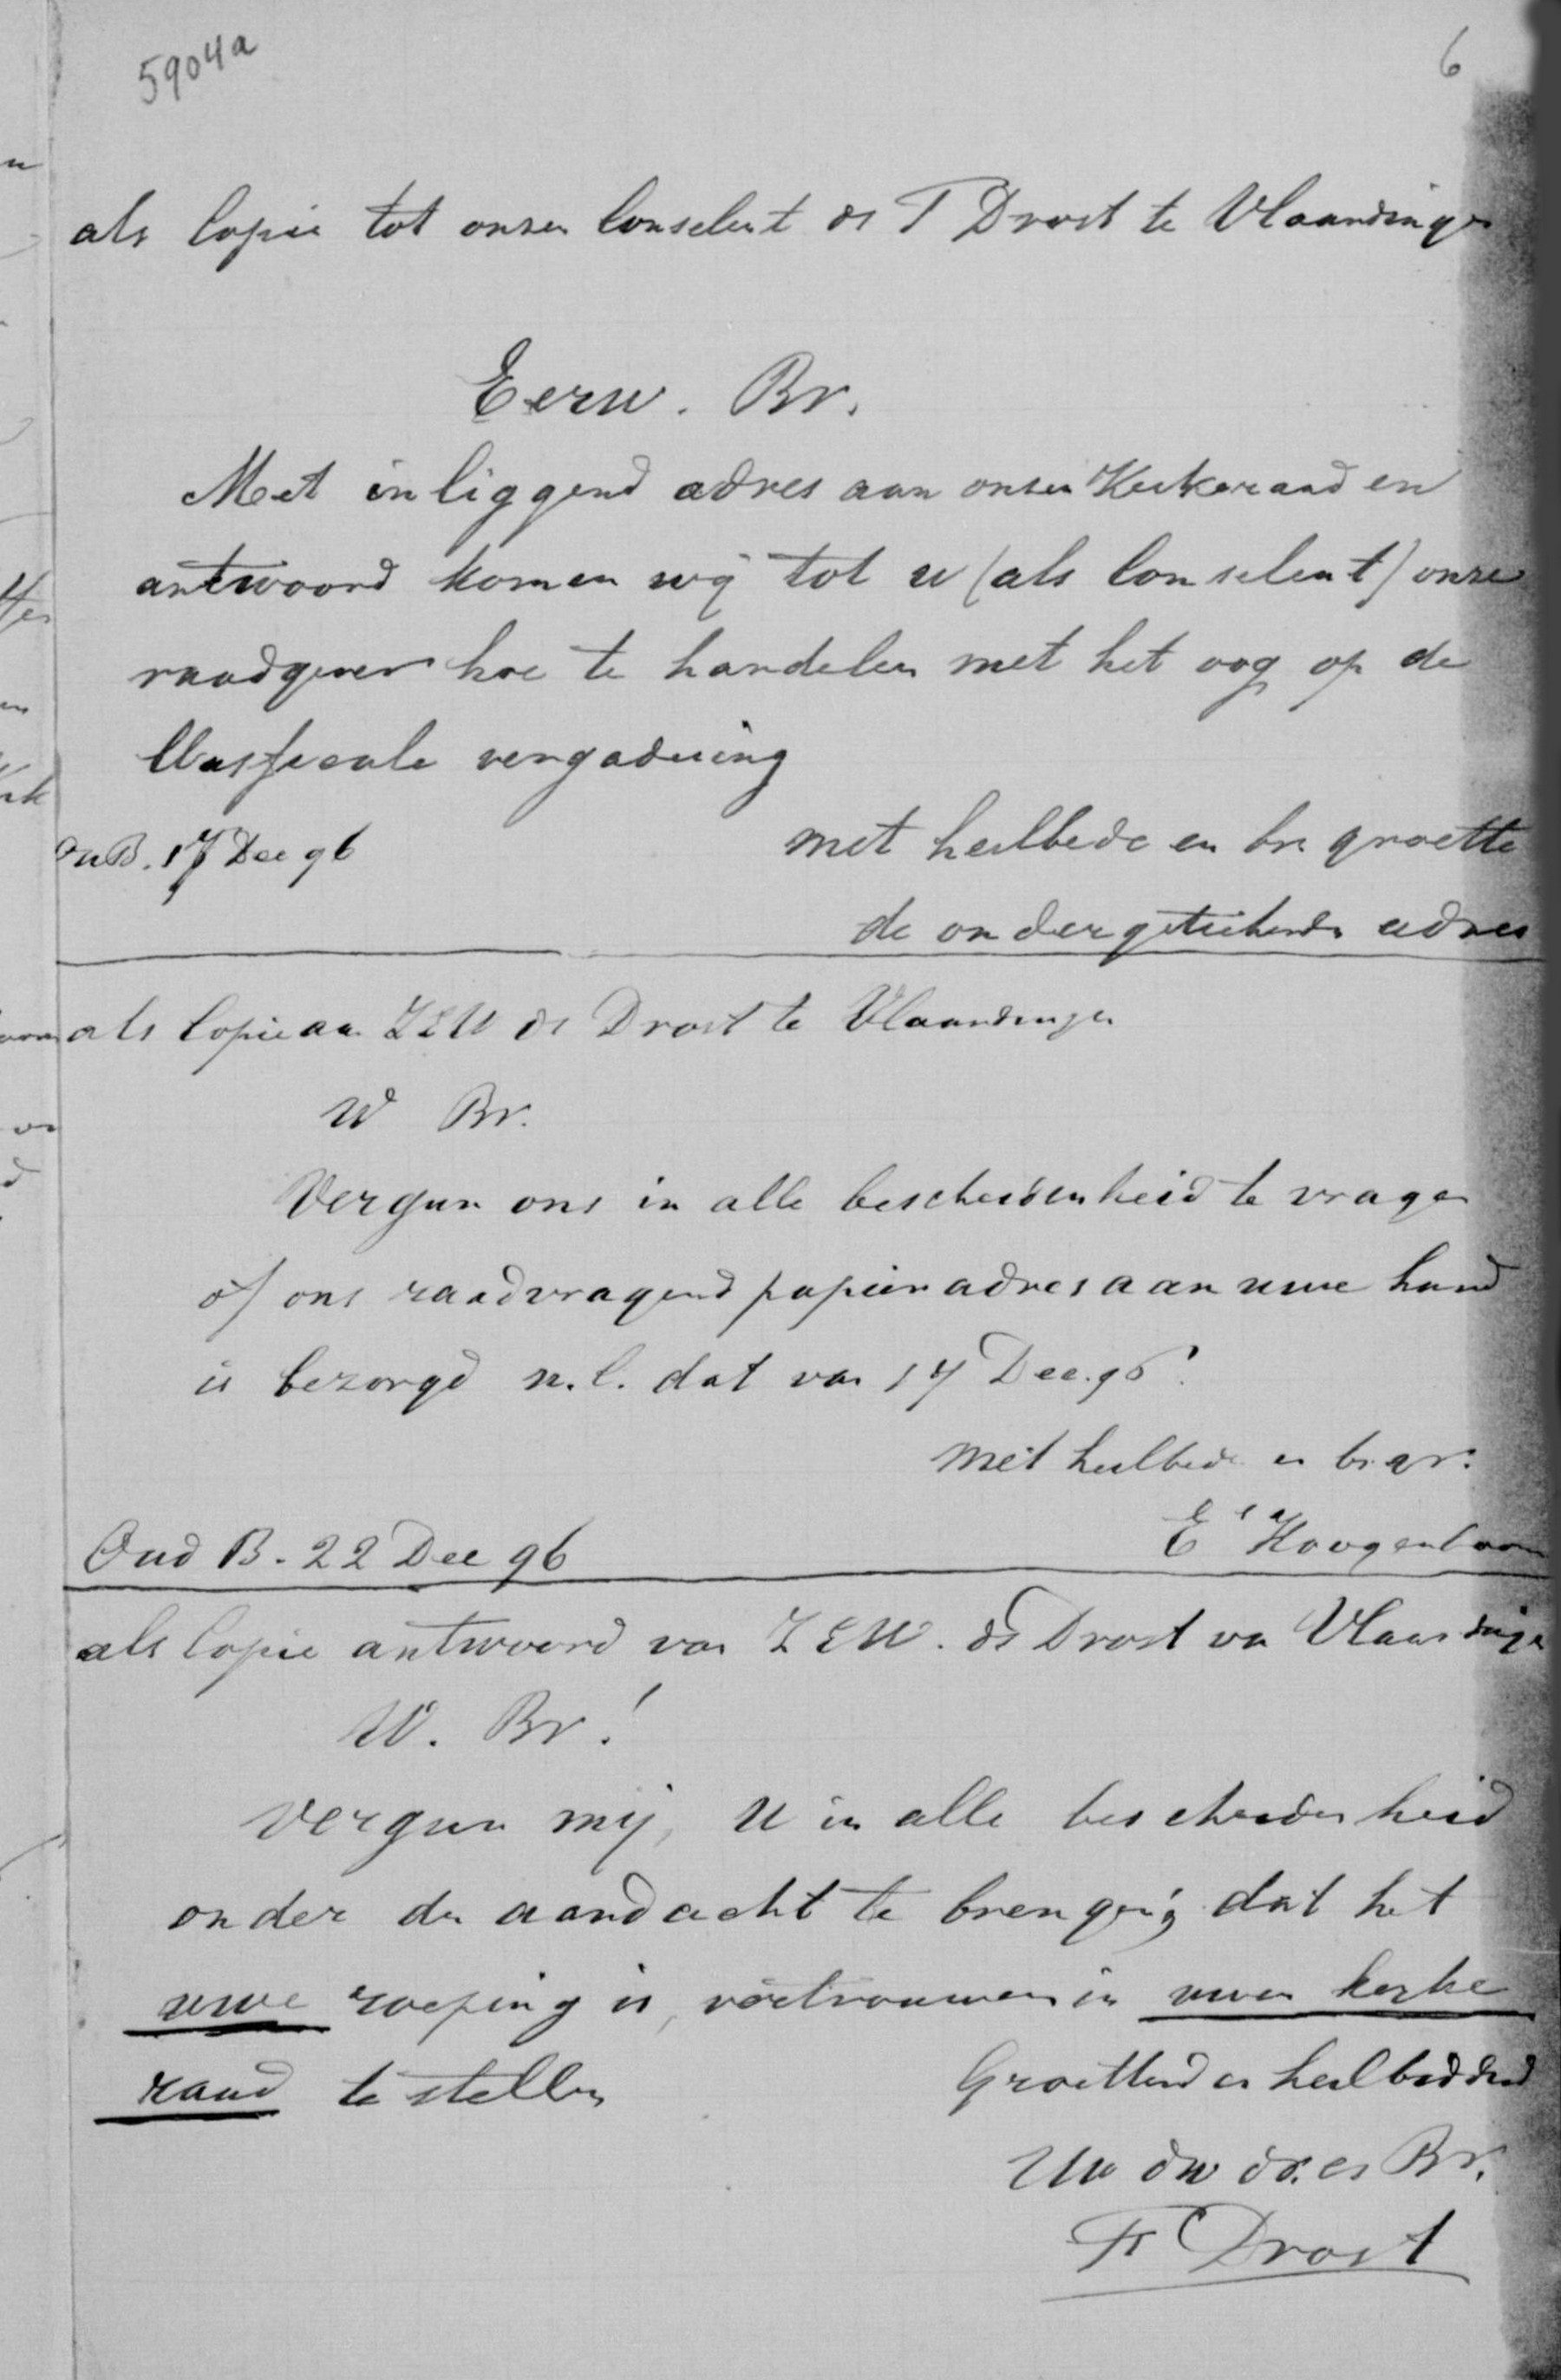 5904a
6
als Copie tot onsen Conselent ds T Drost te Vlaardingen
Eerw. Br.
Met inliggend adres aan onsen Kerkeraad en
antwoord komen wij tot u (als Conselent) onze
raadgever hoe te handelen met het oog op de
Classicale vergadering
OuB. 17 Dec 96
met heilbede en br. groette
de ondergetekende adres
als Copie aan ZEW ds Drost te Vlaardingen
W Br.
Vergun ons in alle bescheidenheid te vragen
of ons raadvragend papier adres aan uwe hand
is bezorgd n.l. dat van 17 Dec. 96.
met heilbede en br. gr.
Oud B. 22 Dec 96
E Hoogenboom
als Copie antwoord van ZEW. ds Drost van Vlaardingen
W. Br!
Vergun mij, U in alle bescheidenheid
onder de aandacht te brengen, dat het
uwe roeping is, vertrouwen in uwen kerke
raad te stellen
Groettend en heilbiddend
Uw dw dr. en Br.
Fr Drost